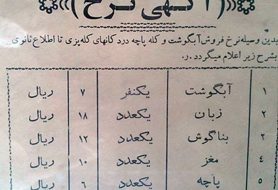 «(آگهی نرخ)»
بدین وسیله نرخ فروش آبگوشت و کله پاچه در دکانهای کله پزی تا اطلاع ثانوی
بشرح زیر اعلام میگردد .ر
۱ آبگوشت یکنفر ۷ ریال
۲ زبان یکعدد ۱۸ ریال
۳ بناگوش یکعدد ۱۲ ریال
۴ مغز یکعدد ۱۰ ریال
۵ پاچه یکعدد ۶ ریال